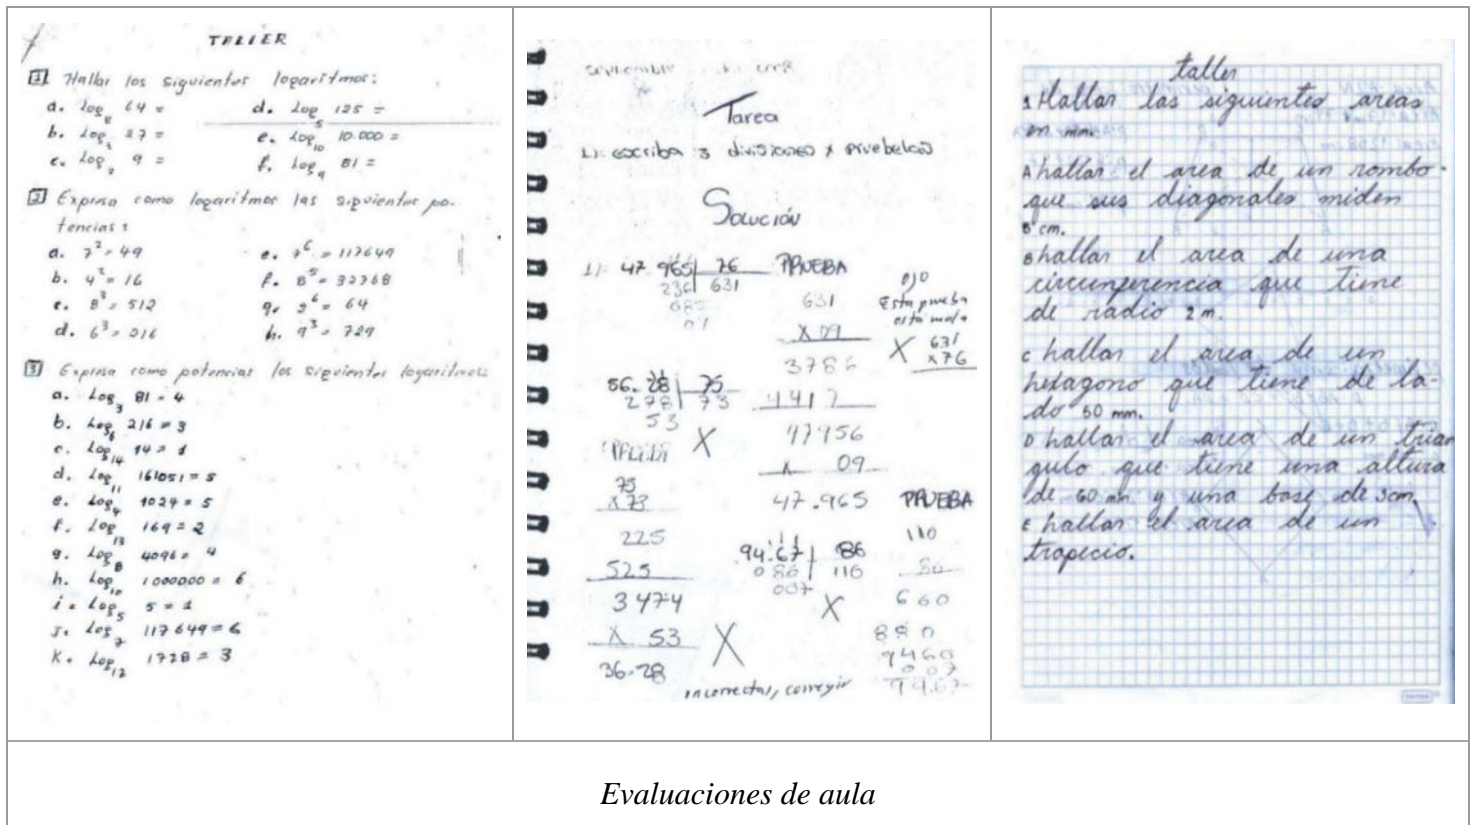 TALLER
1 Hallar los siguientes logaritmos:
a. Log 64 =
d. Log5 125 =
b. Log 27 =
e. Log10 10.000 =
c. Log 9 =
f. Log9 81 =
2 Expresa como logaritmos las siguientes po-
tencias:
a. 7² = 49
e. 7⁶ = 117649
b. 4² = 16
f. 8⁵ = 32768
c. 8³ = 512
g. 2⁶ = 64
d. 6³ = 216
h. 9³ = 729
3 Expresa como potencias los siguientes logaritmos
a. Log3 81 = 4
b. Log6 216 = 3
c. Log14 14 = 1
d. Log11 161051 = 5
e. Log4 1024 = 5
f. Log13 169 = 2
g. Log8 4096 = 4
h. Log10 1000000 = 6
i. Log5 5 = 1
J. Log7 117649 = 6
K. Log12 1728 = 3
septiembre
Tarea
1). escriba 3 divisiones y pruebelas
Solución
1). 47.965 76 PRUEBA
236 631
631
ojo
Esta prueba
está mala
X 09
X 631
x76
3786
56.28 75
278 73
4417
53
47956
X
PRUEBA
09
75
X 73
47.965 PRUEBA
225
110
525
94.67 86
086 110
86
007
3474
X
660
X 53
880
X
9460
007
36.28
9467
incorrectas, corregir
taller
1 Hallar las siguientes areas
en mm.
A hallar el area de un rombo
que sus diagonales miden
8 cm.
B hallar el area de una
circunferencia que tiene
de radio 2 m.
C hallar el area de un
hexagono que tiene de la-
do 50 mm.
D hallar el area de un trian
gulo que tiene una altura
de 60 mm y una base de 3cm
E hallar el area de un
trapecio.
Evaluaciones de aula